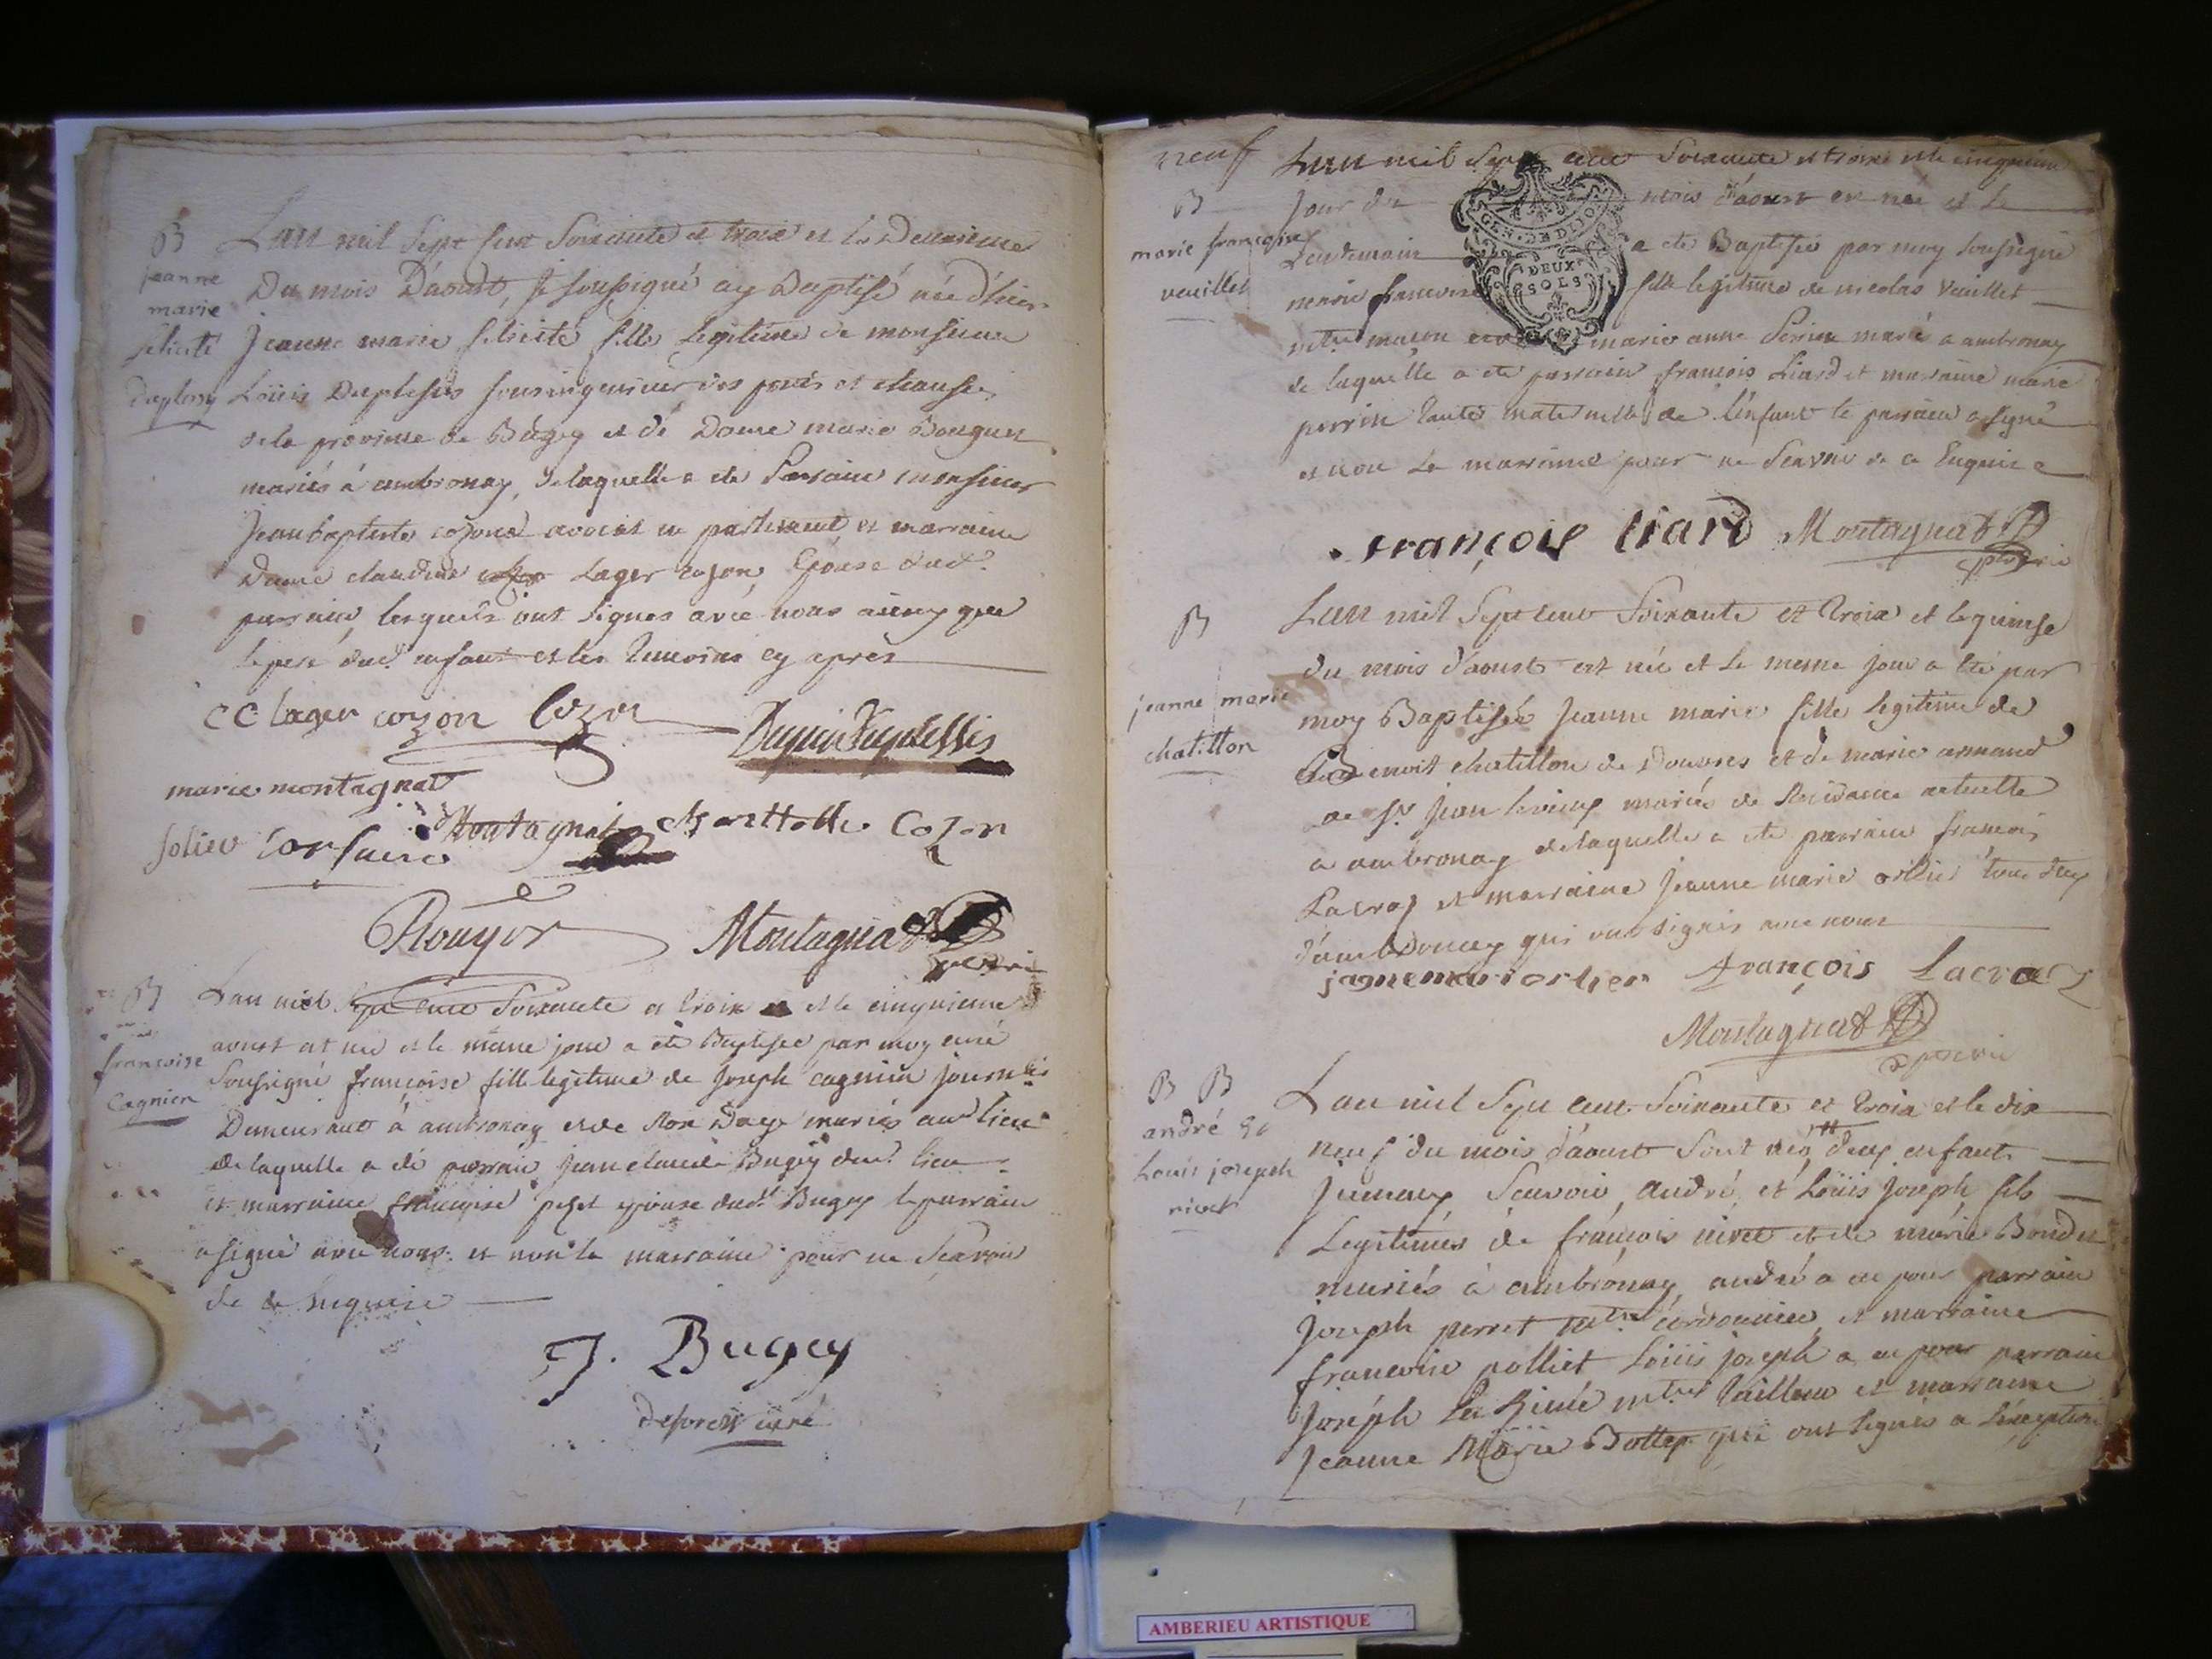 B
jeanne
marie
felicité
duplessy
Lan mil sept cent soixante et trois et le deuxieme
du mois d'aoust, je soussigné ay baptisé née d'hier
jeanne marie felicité fille legitime de monsieur
Loüis duplessis sousingenieur des ponts et chaussés
de la province de Bugey et de dame marie Bouguet
mariés à ambronay, de laquelle a ete parrain monsieur
jean baptiste cozon avocat en parlement, et marraine
dame claudine Lager cozon, Epouse dud.
parrain, lesquels ont signes avec nous ainsy que
le pere dud. enfant et les temoins cy apres
CC lager cozon cozon
Dupuis Duplessis
marie montagnat
Montagnat Cozon
Rouyer Montagnat
vicari
B
françoise
Cagnien
Lan mil sept cent soixante et trois et le cinquieme
aoust est née et le même jour a été baptisée par moy curé
soussigné françoise fille legitime de joseph cagnien journlier
demeurant à ambronay et de mariés aud. lieu
de laquelle a été parrain jean claude Bugey dud. lieu
et marraine françoise pezet epouse dud. Bugey le parrain
a signé avec nous et non la marraine pour ne sçavoir
de ce enquise
J. Bugey
curé
neuf
B
marie françoise
veuillet
Lan mil sept cent soixante et trois et le cinquieme
jour du mois d'aoust est née et le
lendemain a ete Baptisée par moy soussigné
marie francoise fille legitime de nicolas Veuillet
mtre maçon et de marie anne Perrin marié a ambronay
de laquelle a ete parrain françois Liard et marraine marie
perrin tante maternelle de l'enfant le parrain a signé
et non la marraine pour ne scavoir de ce Enquise
GEN. DE DIJON
DEUX
SOLS
françois liard Montagnat
vicari
B
jeanne marie
chatillon
Lan mil sept cent soixante et trois et le quinse
du mois d'aoust est née et le meme jour a été par
moy Baptisée jeanne marie fille legitime de
Benoit chatillon de douvres et de marie armand
de st jean le vieux mariés de residance actuelle
a ambronay de laquelle a ete parrain françois
Lacroy et marraine jeanne marie ortier tous deux
d'ambronay qui ont signés avec nous
jagnemari ortier françois Lacroy
Montagnat
vicari
B B
andré et
Louis joseph
nivet
Lan mil sept cent soixante et trois et le dix
neuf du mois d'aoust sont nés deux enfants
jumeaux, scavoir, andré, et Loüis joseph, fils
Legitimes de françois nivet et de marie Bondet
mariés à ambronay, andré a eu pour parrain
joseph perret mtre cordonnier, et marraine
francoise polliet Loüis joseph a eu pour parrain
joseph mtre tailleur et marraine
jeanne Marie Bottex qui ont signés a l'exeption
AMBERIEU ARTISTIQUE